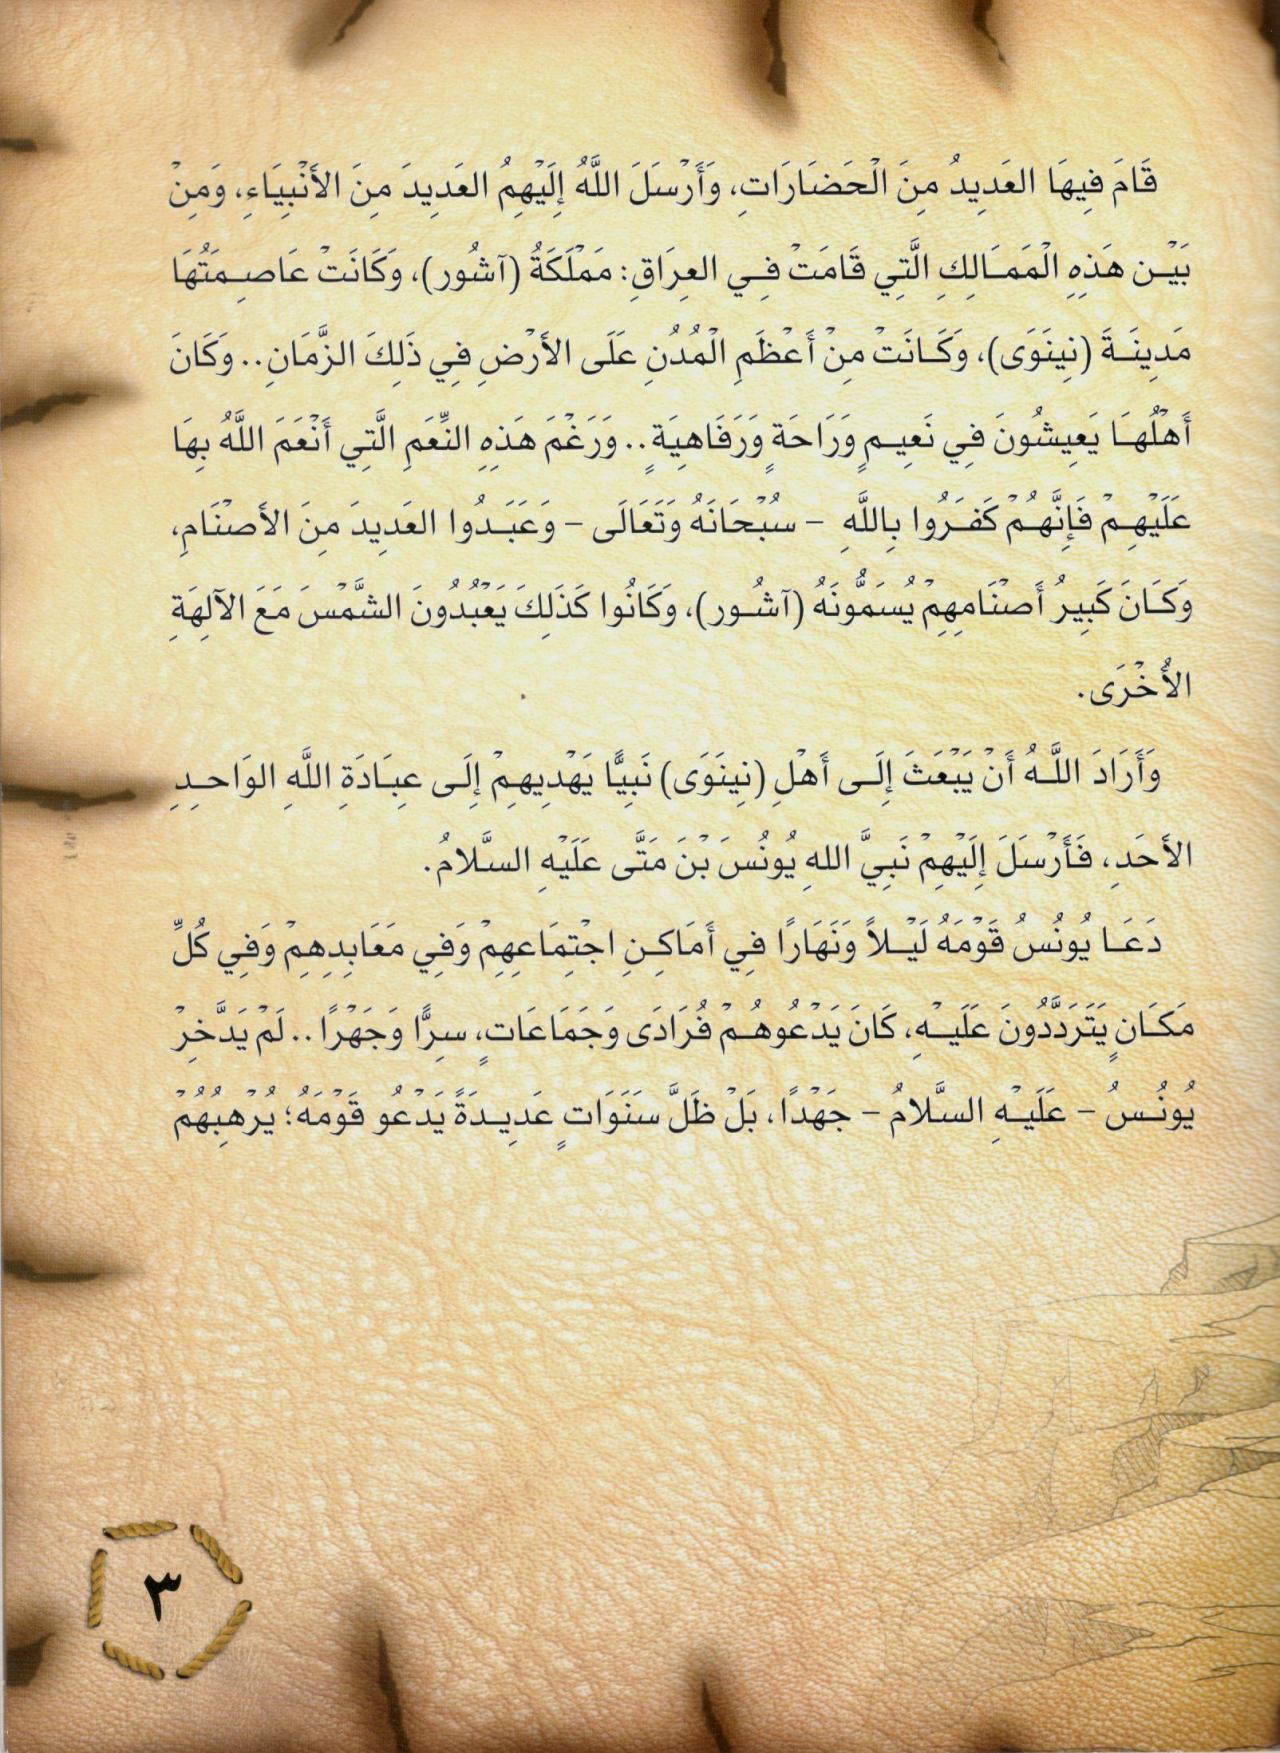 قَامَ فِيهَا العَدِيدُ مِنَ الْحَضَارَاتِ، وَأَرْسَلَ اللَّهُ إِلَيْهِمُ العَدِيدَ مِنَ الأَنْبِيَاءِ، وَمِنْ
بَيْنِ هَذِهِ الْمَمَالِكِ الَّتِي قَامَتْ فِي العِرَاقِ: مَمْلَكَةُ (آشُور)، وَكَانَتْ عَاصِمَتُهَا
مَدِينَةَ (نِينَوَى)، وَكَانَتْ مِنْ أَعْظَمِ الْمُدُنِ عَلَى الأَرْضِ فِي ذَلِكَ الزَّمَانِ.. وَكَانَ
أَهْلُهَا يَعِيشُونَ فِي نَعِيمٍ وَرَاحَةٍ وَرَفَاهِيَةٍ.. وَرَغْمَ هَذِهِ النِّعَمِ الَّتِي أَنْعَمَ اللَّهُ بِهَا
عَلَيْهِمْ فَإِنَّهُمْ كَفَرُوا بِاللَّهِ – سُبْحَانَهُ وَتَعَالَى – وَعَبَدُوا العَدِيدَ مِنَ الأَصْنَامِ،
وَكَانَ كَبِيرُ أَصْنَامِهِمْ يُسَمُّونَهُ (آشُور)، وَكَانُوا كَذَلِكَ يَعْبُدُونَ الشَّمْسَ مَعَ الآلِهَةِ
الأُخْرَى.
وَأَرَادَ اللَّهُ أَنْ يَبْعَثَ إِلَى أَهْلِ (نِينَوَى) نَبِيًّا يَهْدِيهِمْ إِلَى عِبَادَةِ اللَّهِ الوَاحِدِ
الأَحَدِ، فَأَرْسَلَ إِلَيْهِمْ نَبِيَّ اللهِ يُونُسَ بْنَ مَتَّى عَلَيْهِ السَّلامُ.
دَعَا يُونُسُ قَوْمَهُ لَيْلاً وَنَهَارًا فِي أَمَاكِنِ اجْتِمَاعِهِمْ وَفِي مَعَابِدِهِمْ وَفِي كُلِّ
مَكَانٍ يَتَرَدَّدُونَ عَلَيْهِ، كَانَ يَدْعُوهُمْ فُرَادَى وَجَمَاعَاتٍ، سِرًّا وَجَهْرًا.. لَمْ يَدَّخِرْ
يُونُسُ – عَلَيْهِ السَّلامُ – جَهْدًا، بَلْ ظَلَّ سَنَوَاتٍ عَدِيدَةً يَدْعُو قَوْمَهُ؛ يُرْهِبُهُمْ
٣